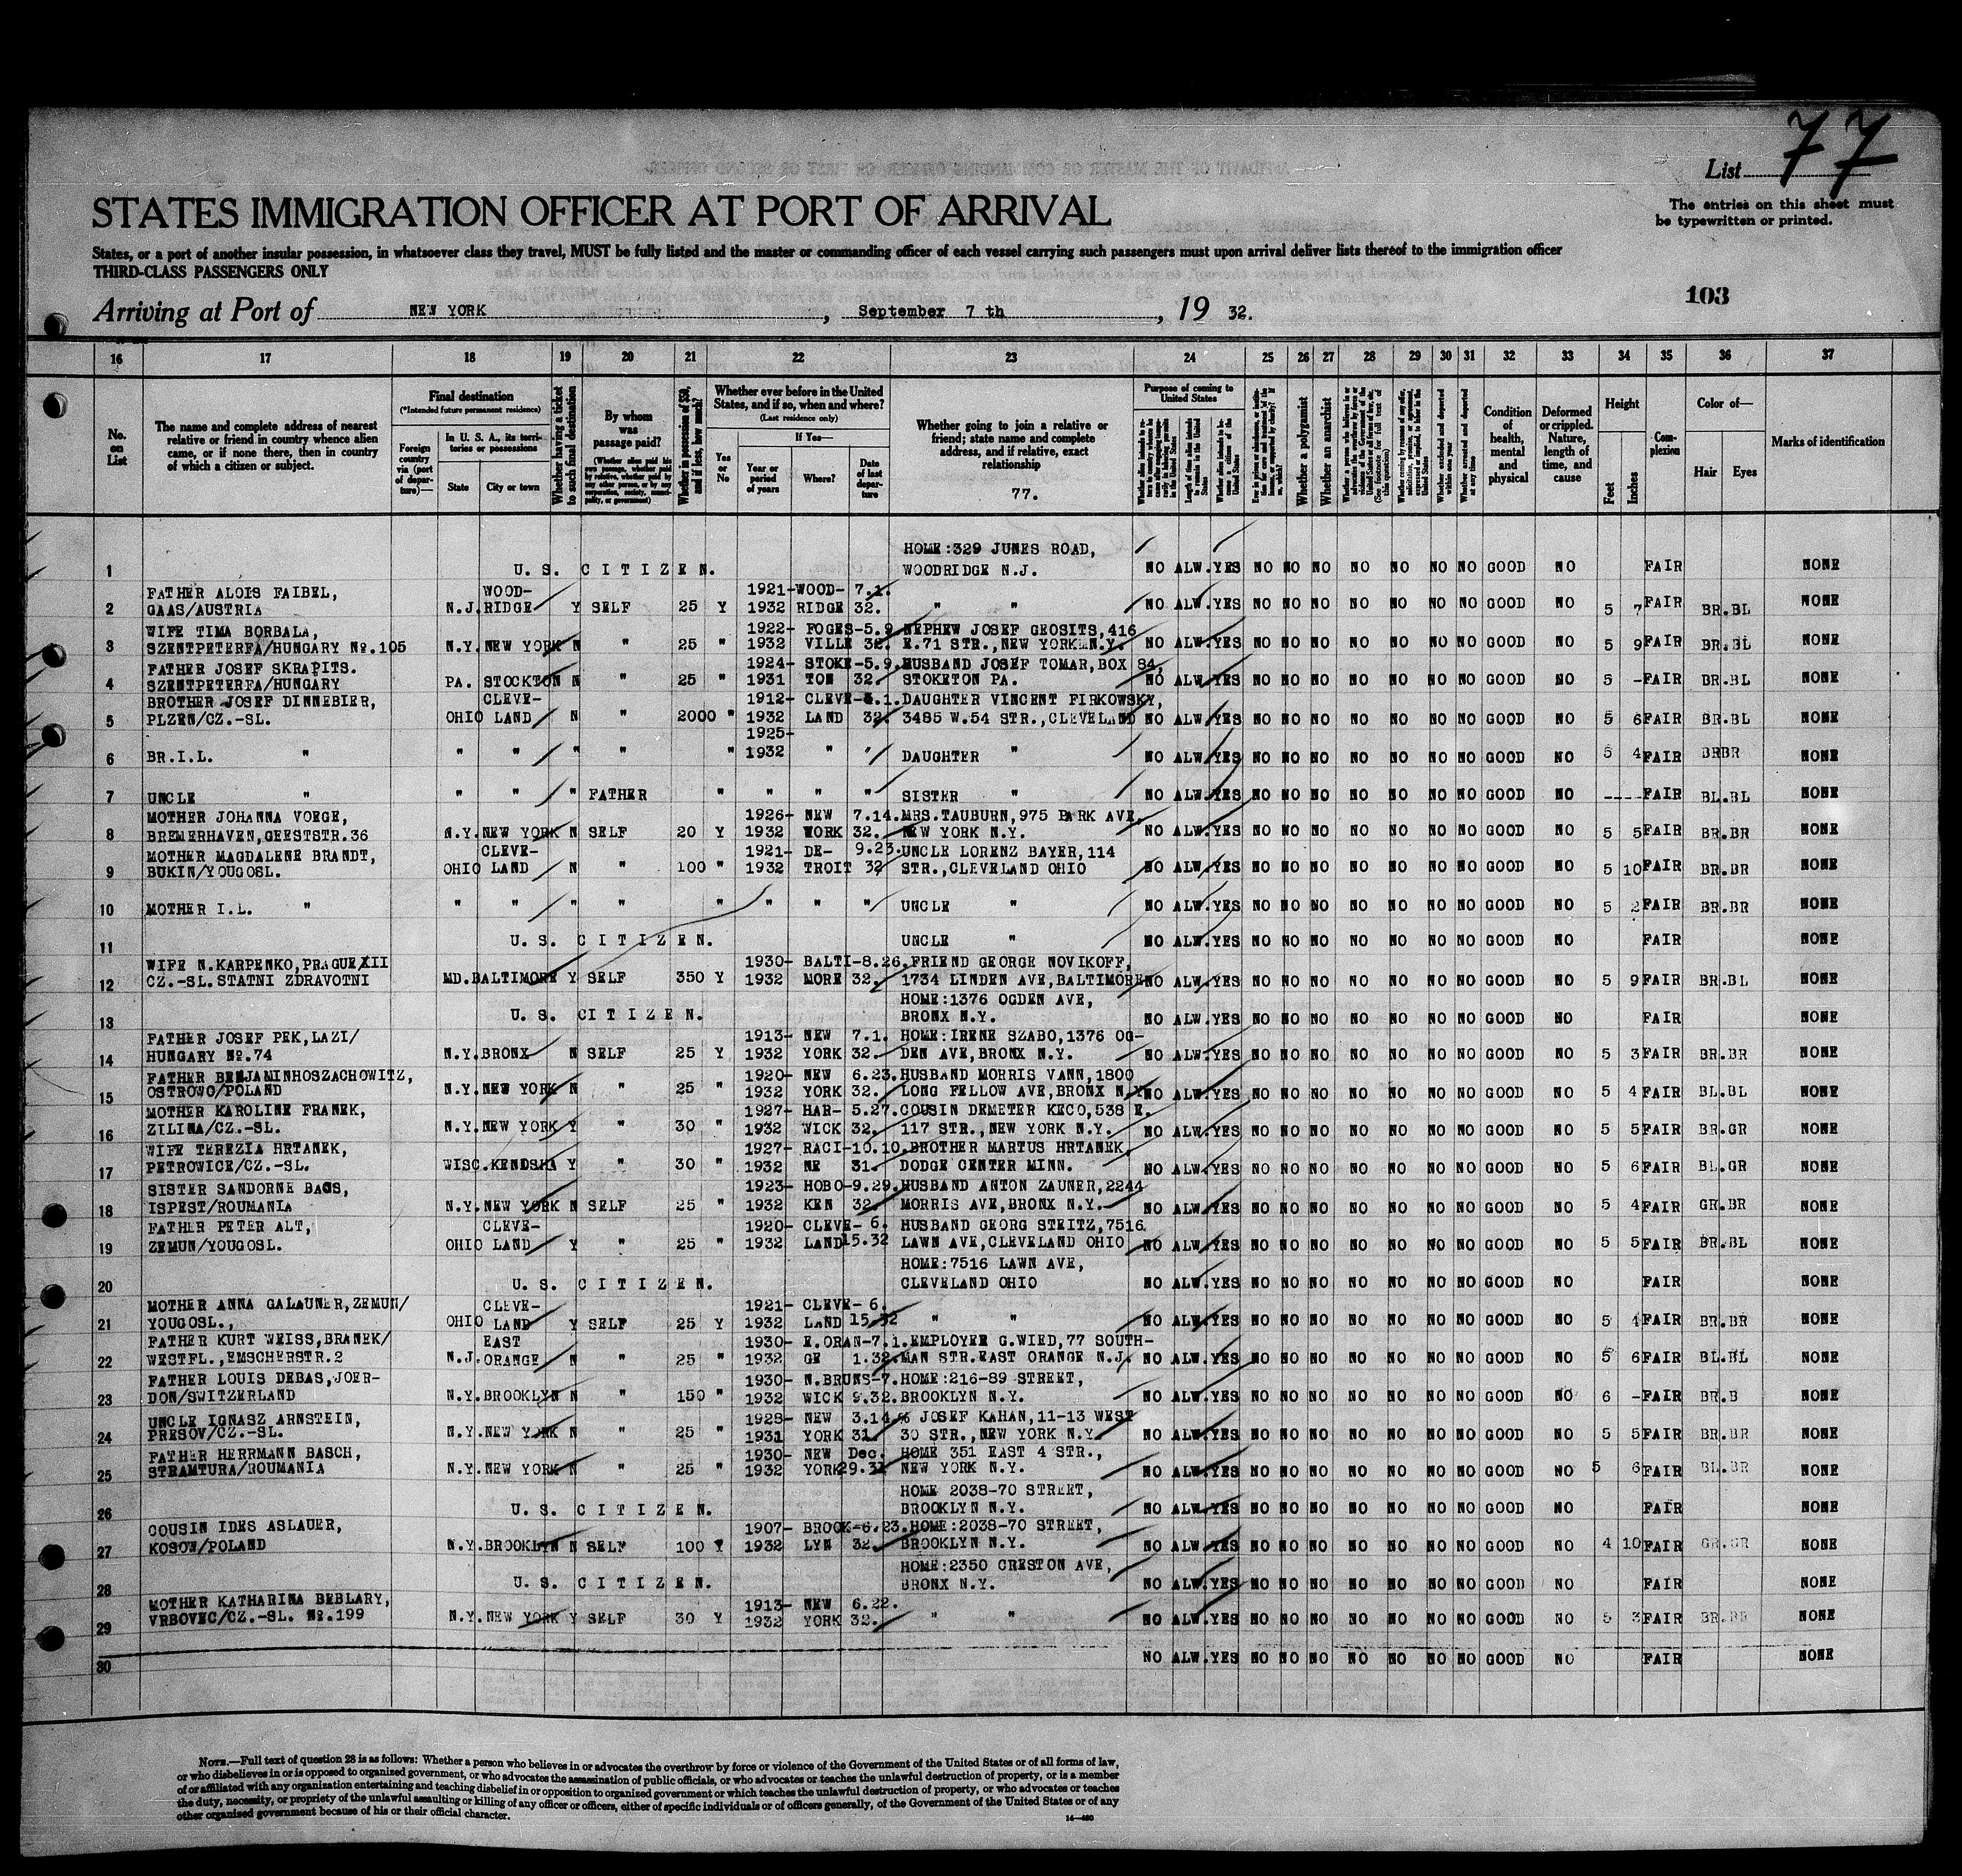 List 77
STATES IMMIGRATION OFFICER AT PORT OF ARRIVAL
The entries on this sheet must
be typewritten or printed.
States, or a port of another insular possession, in whatsoever class they travel, MUST be fully listed and the master or commanding officer of each vessel carrying such passengers must upon arrival deliver lists thereof to the immigration officer
THIRD-CLASS PASSENGERS ONLY
103
Arriving at Port of NEW YORK, September 7 th, 19 32.
16 17 18 19 20 21 22 23 24 25 26 27 28 29 30 31 32 33 34 35 36 37
No. on List
The name and complete address of nearest relative or friend in country whence alien came, or if none there, then in country of which a citizen or subject.
Final destination
(*Intended future permanent residence)
Foreign country via (port of departure)—
In U. S. A., its territories or possessions
State City or town
Whether having a ticket to such final destination
By whom was passage paid?
(Whether alien paid his own passage, whether paid by relative, whether paid by any other person, or by any corporation, society, municipality, or government)
Whether in possession of $50, and if less, how much?
Whether ever before in the United States, and if so, when and where?
(Last residence only)
Yes or No
If Yes—
Year or period of years Where? Date of last departure
Whether going to join a relative or friend; state name and complete address, and if relative, exact relationship
77.
Purpose of coming to United States
Whether a polygamist
Whether an anarchist
Whether excluded and deported within one year
Whether arrested and deported at any time
Condition of health, mental and physical
Deformed or crippled. Nature, length of time, and cause
Height
Feet Inches
Complexion
Color of—
Hair Eyes
Marks of identification
HOME:329 JUNES ROAD,
1 U. S. CITIZEN. WOODRIDGE N.J. NO ALW.YES NO NO NO NO NO NO NO GOOD NO FAIR NONE
FATHER ALOIS FAIBEL, WOOD- 1921- WOOD- 7.1.
2 GAAS/AUSTRIA N.J. RIDGE Y SELF 25 Y 1932 RIDGE 32. " " NO ALW.YES NO NO NO NO NO NO NO GOOD NO 5 7 FAIR BR.BL NONE
WIFE TIMA BORBALA, 1922- FOGES- 5.9. NEPHEW JOSEF GEOSITS,416
3 SZENTPETERFA/HUNGARY No.105 N.Y. NEW YORK N " 25 " 1932 VILLE 32. E.71 STR.,NEW YORK N.Y. NO ALW.YES NO NO NO NO NO NO NO GOOD NO 5 9 FAIR BR.BL NONE
FATHER JOSEF SKRAPITS. 1924- STOKE- 5.9. HUSBAND JOSEF TOMAR,BOX 84,
4 SZENTPETERFA/HUNGARY PA. STOCKTON N " 25 " 1931 TON 32. STOKETON PA. NO ALW.YES NO NO NO NO NO NO NO GOOD NO 5 - FAIR BR.BL NONE
BROTHER JOSEF DINNEBIER, CLEVE- 1912- CLEVE- .1. DAUGHTER VINCENT FIRKOWSKY,
5 PLZEN/CZ.-SL. OHIO LAND N " 2000 " 1932 LAND 32. 3485 W.54 STR.,CLEVELAND NO ALW.YES NO NO NO NO NO NO NO GOOD NO 5 6 FAIR BR.BL NONE
1925-
6 BR.I.L. " " " " " " 1932 " " DAUGHTER " NO ALW.YES NO NO NO NO NO NO NO GOOD NO 5 4 FAIR BRBR NONE
7 UNCLE " " " " FATHER " " " " SISTER " NO ALW.YES NO NO NO NO NO NO NO GOOD NO ---- FAIR BL.BL NONE
MOTHER JOHANNA VOEGE, 1926- NEW 7.14. MRS.TAUBURN,975 PARK AVE,
8 BREMERHAVEN,GEESTSTR.36 N.Y. NEW YORK N SELF 20 Y 1932 YORK 32. NEW YORK N.Y. NO ALW.YES NO NO NO NO NO NO NO GOOD NO 5 5 FAIR BR.BR NONE
MOTHER MAGDALENE BRANDT, CLEVE- 1921- DE- 9.23. UNCLE LORENZ BAYER,114
9 BUKIN/YOUGOSL. OHIO LAND N " 100 " 1932 TROIT 32 STR.,CLEVELAND OHIO NO ALW.YES NO NO NO NO NO NO NO GOOD NO 5 10 FAIR BR.BR NONE
10 MOTHER I.L. " " " " " " " " " UNCLE " NO ALW.YES NO NO NO NO NO NO NO GOOD NO 5 2 FAIR BR.BR NONE
11 U. S. CITIZEN. UNCLE " NO ALW.YES NO NO NO NO NO NO NO GOOD NO FAIR NONE
WIFE N.KARPENKO,PRAGUE XII 1930- BALTI- 8.26. FRIEND GEORGE NOVIKOFF,
12 CZ.-SL.STATNI ZDRAVOTNI MD. BALTIMORE Y SELF 350 Y 1932 MORE 32. 1734 LINDEN AVE,BALTIMORE NO ALW.YES NO NO NO NO NO NO NO GOOD NO 5 9 FAIR BR.BL NONE
HOME:1376 OGDEN AVE,
13 U. S. CITIZEN. BRONX N.Y. NO ALW.YES NO NO NO NO NO NO NO GOOD NO FAIR NONE
FATHER JOSEF PEK,LAZI/ 1913- NEW 7.1. HOME:IRENE SZABO,1376 OG-
14 HUNGARY No.74 N.Y. BRONX N SELF 25 Y 1932 YORK 32. DEN AVE,BRONX N.Y. NO ALW.YES NO NO NO NO NO NO NO GOOD NO 5 3 FAIR BR.BR NONE
FATHER BENJAMINHOSZACHOWITZ, 1920- NEW 6.23. HUSBAND MORRIS VANN,1800
15 OSTROWO/POLAND N.Y. NEW YORK N " 25 " 1932 YORK 32. LONG FELLOW AVE,BRONX N.Y. NO ALW.YES NO NO NO NO NO NO NO GOOD NO 5 4 FAIR BL.BL NONE
MOTHER KAROLINE FRANEK, 1927- HAR- 5.27. COUSIN DEMETER KECO,538 E.
16 ZILINA/CZ.-SL. N.Y. NEW YORK Y " 30 " 1932 WICK 32. 117 STR.,NEW YORK N.Y. NO ALW.YES NO NO NO NO NO NO NO GOOD NO 5 5 FAIR BR.GR NONE
WIFE TEREZIA HRTANEK, 1927- RACI- 10.10. BROTHER MARTUS HRTANEK,
17 PETROWICE/CZ.-SL. WISC. KENOSHA Y " 30 " 1932 NE 31. DODGE CENTER MINN. NO ALW.YES NO NO NO NO NO NO NO GOOD NO 5 6 FAIR BL.GR NONE
SISTER SANDORNE BAGS, 1923- HOBO- 9.29. HUSBAND ANTON ZAUNER,2244
18 ISPEST/ROUMANIA N.Y. NEW YORK N SELF 25 " 1932 KEN 32. MORRIS AVE,BRONX N.Y. NO ALW.YES NO NO NO NO NO NO NO GOOD NO 5 4 FAIR GR.BR NONE
FATHER PETER ALT, CLEVE- 1920- CLEVE- 6. HUSBAND GEORG STEITZ,7516
19 ZEMUN/YOUGOSL. OHIO LAND Y " 25 " 1932 LAND 15.32 LAWN AVE,CLEVELAND OHIO NO ALW.YES NO NO NO NO NO NO NO GOOD NO 5 5 FAIR BR.BL NONE
HOME:7516 LAWN AVE,
20 U. S. CITIZEN. CLEVELAND OHIO NO ALW.YES NO NO NO NO NO NO NO GOOD NO FAIR NONE
MOTHER ANNA GALAUNER,ZEMUN/ CLEVE- 1921- CLEVE- 6.
21 YOUGOSL., OHIO LAND Y SELF 25 Y 1932 LAND 15.32 " " NO ALW.YES NO NO NO NO NO NO NO GOOD NO 5 4 FAIR BR.BR NONE
FATHER KURT WEISS,BRANEK/ EAST 1930- E.ORAN- 7.1. EMPLOYER G.WIED,77 SOUTH-
22 WESTFL.,EMSCHERSTR.2 N.J. ORANGE N " 25 " 1932 GE 1.32. MAN STR.EAST ORANGE N.J. NO ALW.YES NO NO NO NO NO NO NO GOOD NO 5 6 FAIR BL.BL NONE
FATHER LOUIS DEBAS,JOER- 1930- N.BRUNS- 7. HOME:216-89 STREET,
23 DON/SWITZERLAND N.Y. BROOKLYN N " 150 " 1932 WICK 9.32. BROOKLYN N.Y. NO ALW.YES NO NO NO NO NO NO NO GOOD NO 6 - FAIR BR.B NONE
UNCLE IGNASZ ARNSTEIN, 1928- NEW 3.14. % JOSEF KAHAN,11-13 WEST
24 PRESOV/CZ.-SL. N.Y. NEW YORK N " 25 " 1931 YORK 31. 30 STR.,NEW YORK N.Y. NO ALW.YES NO NO NO NO NO NO NO GOOD NO 5 5 FAIR BR.BR NONE
FATHER HERRMANN BASCH, 1930- NEW Dec. HOME 351 EAST 4 STR.,
25 STRAMTURA/ROUMANIA N.Y. NEW YORK N " 25 " 1932 YORK 29.31 NEW YORK N.Y. NO ALW.YES NO NO NO NO NO NO NO GOOD NO 5 6 FAIR BL.BR NONE
HOME 2038-70 STREET,
26 U. S. CITIZEN. BROOKLYN N.Y. NO ALW.YES NO NO NO NO NO NO NO GOOD NO FAIR NONE
COUSIN IDES ASLAUER, 1907- BROOK- 6.23. HOME:2038-70 STREET,
27 KOSOW/POLAND N.Y. BROOKLYN N SELF 100 Y 1932 LYN 32. BROOKLYN N.Y. NO ALW.YES NO NO NO NO NO NO NO GOOD NO 4 10 FAIR GR.GR NONE
HOME:2350 CRESTON AVE,
28 U. S. CITIZEN. BRONX N.Y. NO ALW.YES NO NO NO NO NO NO NO GOOD NO FAIR NONE
MOTHER KATHARINA BEBLARY, 1913- NEW 6.22.
29 VRBOVEC/CZ.-SL. No.199 N.Y. NEW YORK Y SELF 30 Y 1932 YORK 32. " " NO ALW.YES NO NO NO NO NO NO NO GOOD NO 5 3 FAIR BR.BR NONE
30 NO ALW.YES NO NO NO NO NO NO NO GOOD NO FAIR NONE
NOTE.—Full text of question 28 is as follows: Whether a person who believes in or advocates the overthrow by force or violence of the Government of the United States or of all forms of law,
or who disbelieves in or is opposed to organized government, or who advocates the assassination of public officials, or who advocates or teaches the unlawful destruction of property, or is a member
of or affiliated with any organization entertaining and teaching disbelief in or opposition to organized government or which teaches the unlawful destruction of property, or who advocates or teaches
the duty, necessity, or propriety of the unlawful assaulting or killing of any officer or officers, either of specific individuals or of officers generally, of the Government of the United States or of any
other organized government because of his or their official character.
14—480